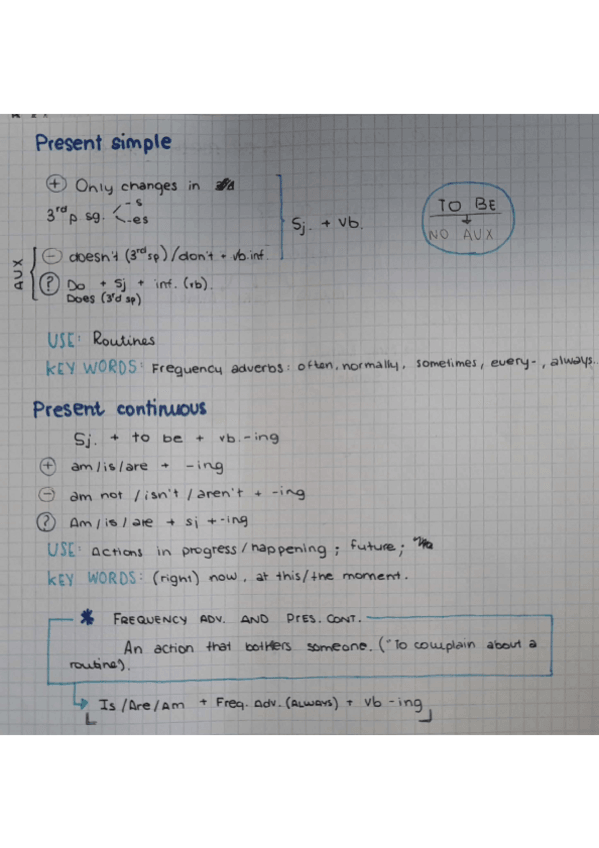 Present simple
⊕ Only changes in
3rd p sg. -s
-es
Sj. + vb.
TO BE
↓
NO AUX
AUX
⊖ doesn't (3rd sp) / don't + vb.inf.
? Do + Sj + inf. (vb).
Does (3rd sp)
USE: Routines
KEY WORDS: Frequency adverbs: often, normally, sometimes, every-, always..
Present continuous
Sj. + to be + vb.-ing
⊕ am/is/are + -ing
⊖ am not / isn't / aren't + -ing
? Am/is/are + sj + -ing
USE: Actions in progress/happening; future;
KEY WORDS: (right) now, at this/the moment.
* FREQUENCY ADV. AND PRES. CONT.
An action that bothers someone. ("To complain about a
routine).
→ Is/Are/Am + Freq. Adv. (ALWAYS) + Vb -ing